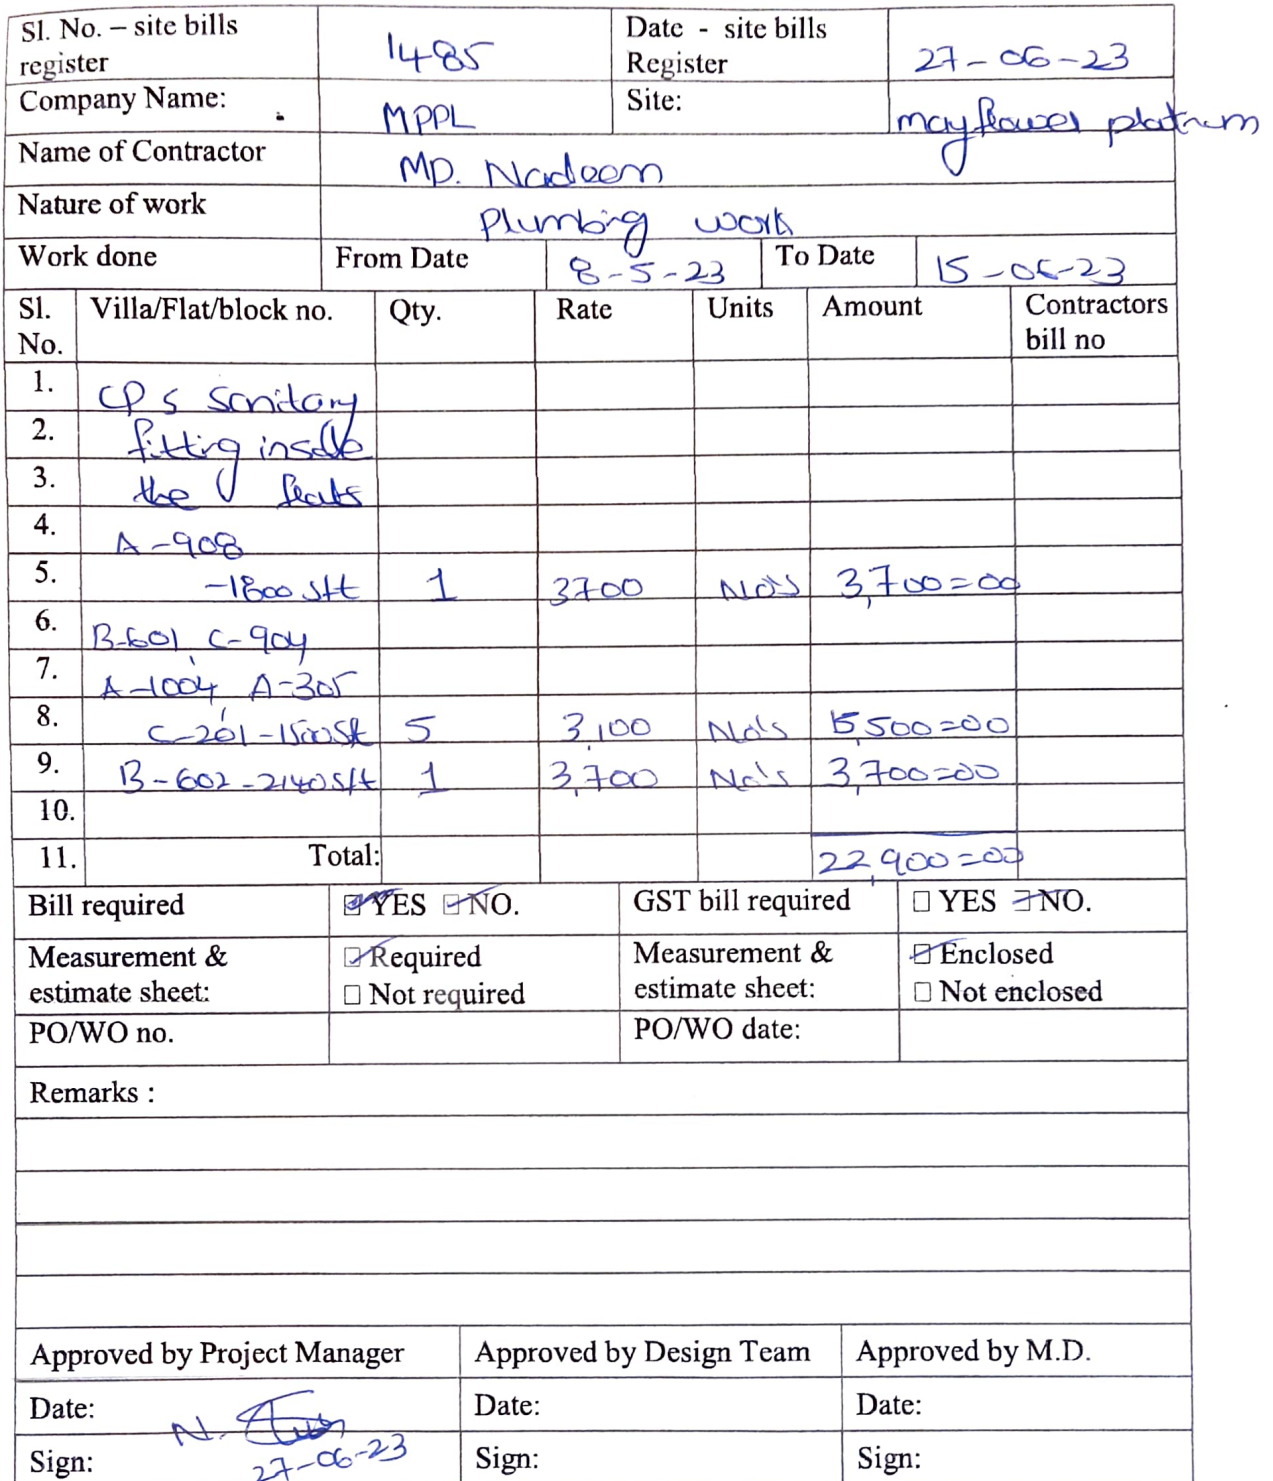 Sl. No. – site bills register 1485 Date - site bills Register 27-06-23
Company Name: MPPL Site: mayflower platinum
Name of Contractor MD. Nadeem
Nature of work Plumbing work
Work done From Date 8-5-23 To Date 15-06-23
Sl. No. Villa/Flat/block no. Qty. Rate Units Amount Contractors bill no
1. CP s sanitary
2. fitting inside
3. the flats
4. A-908
5. -1800 sft 1 3700 No's 3,700=00
6. B-601, C-904
7. A-1004, A-305
8. C-201-1500 Sft 5 3,100 No's 15,500=00
9. B-602-2140 sft 1 3,700 No's 3,700=00
10.
11. Total: 22,900=00
Bill required YES NO. GST bill required YES NO.
Measurement & estimate sheet: Required Measurement & estimate sheet: Enclosed
Not required Not enclosed
PO/WO no. PO/WO date:
Remarks :
Approved by Project Manager Approved by Design Team Approved by M.D.
Date: Date: Date:
N.
Sign: 27-06-23 Sign: Sign: